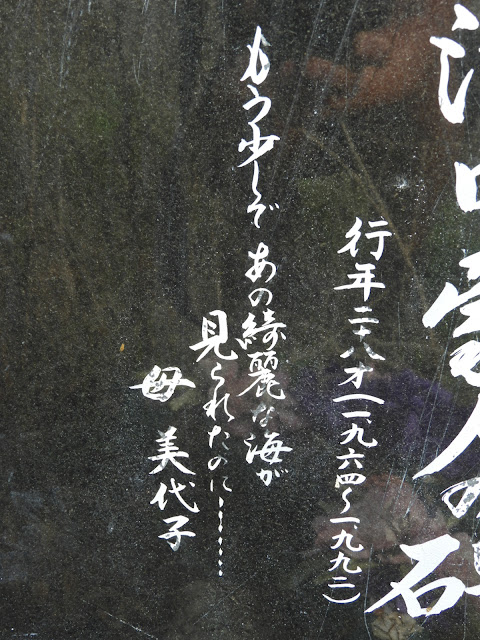 行年二十八才(一、九六四〜一、九九二)
もう少しで あの綺麗な海が
見られたのに………
母 美代子